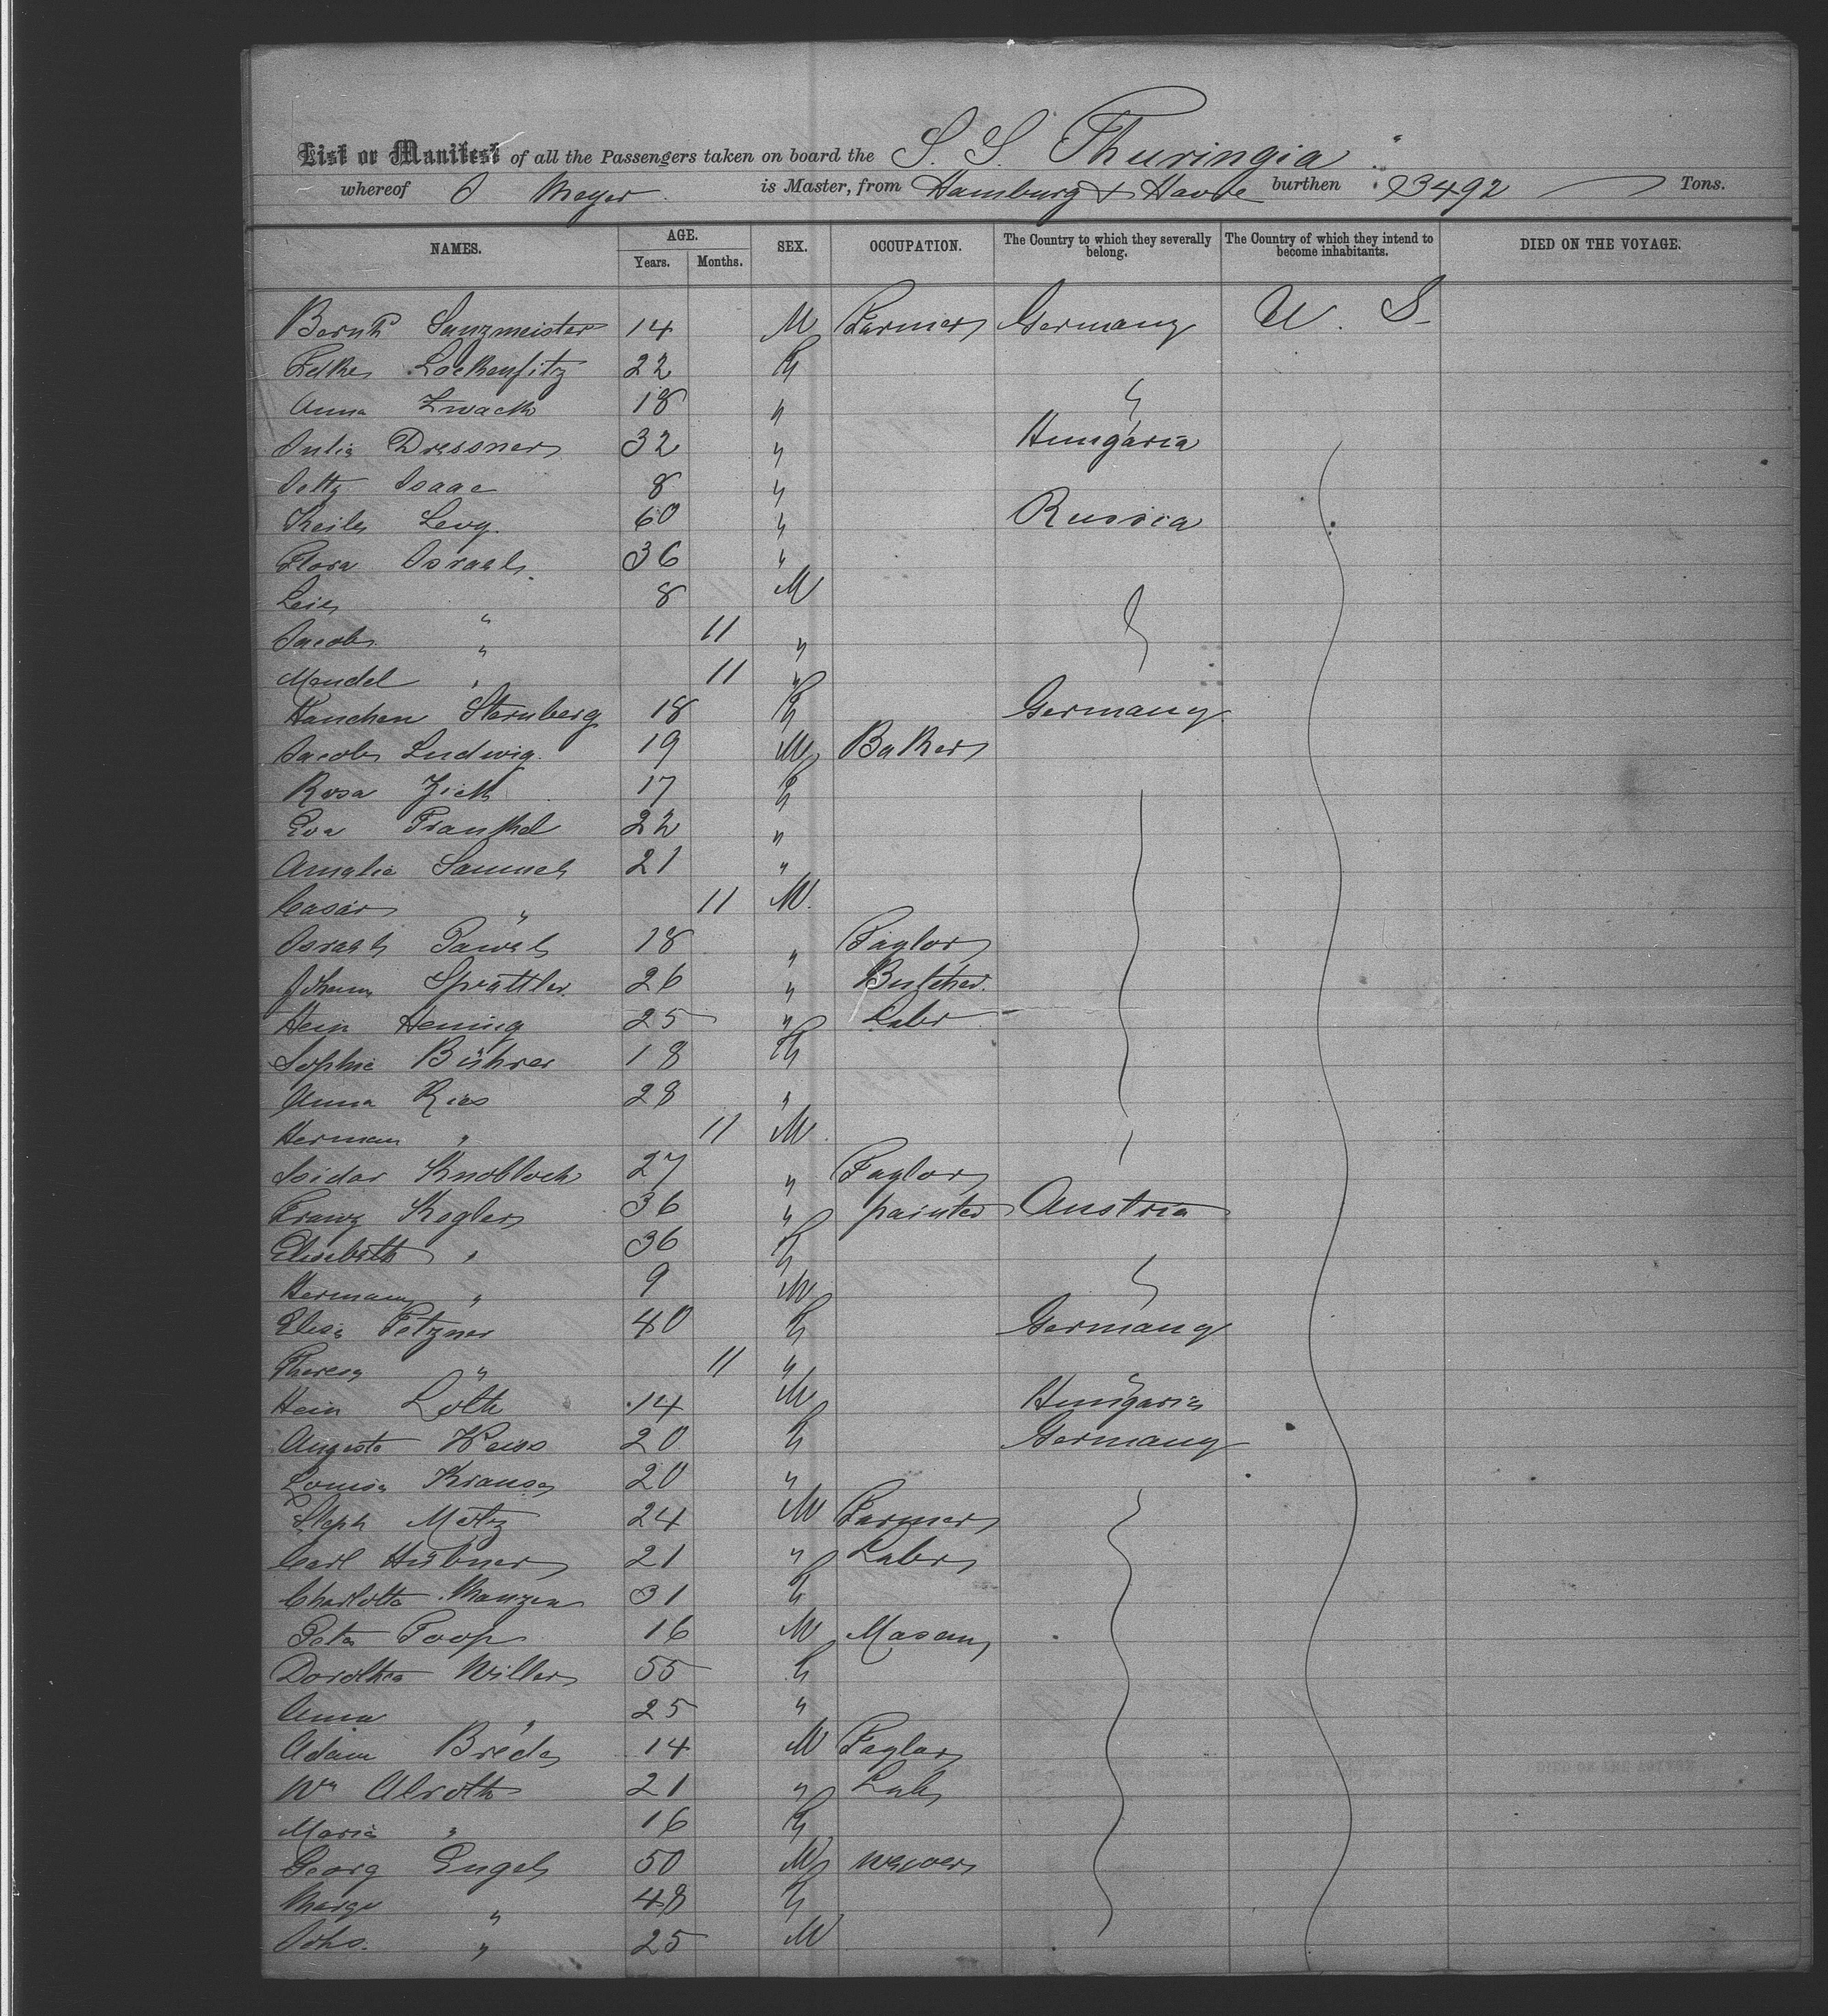 List or Manifest of all the Passengers taken on board the S. S. Thuringia
whereof Meyer is Master, from Hamburg & Havre burthen 3492 Tons.
NAMES. AGE. SEX. OCCUPATION. The Country to which they severally belong. The Country of which they intend to become inhabitants. DIED ON THE VOYAGE.
Years. Months.
Bernh Sanzmeister 14 M Farmer Germany U. S.
22 F
Anna Zwack 18 "
Julia Dressner 32 " Hungaria
Jetty Isaac 8 "
Levy 60 " Russia
Flora Israel 36 "
8 M
Jacob " 11 "
Mendel " 11 "
Hanchen Sternberg 18 F Germany
Jacob Ludwig 19 M Baker
Rosa Zick 17 F
Eva Frankel 22 "
Amalia Samuel 21 "
Casar " 11 M
Israel Pawel 18 " Taylor
Johann Sprattler 26 " Butcher
Hein Hening 25 " Labr
Sophie Bührer 18 F
Anna Ries 28 "
Herman " 11 M
Isidor Knobloch 27 " Taylor
Franz Kogler 36 " painter Austria
Elisabeth " 36 F
Hermann " 9 M
Elisa Petzner 40 F Germany
Theresa " 11 "
Hein Loth 14 M Hungaria
Augusta 20 F Germany
Louisa Krause 20 "
Steph Metz 24 M Farmer
Carl Hübner 21 " Labr
Charlotte Manzen 31 F
Peter Poop 16 M Mason
Dorothea Willer 55 F
Anna " 25 "
Adam Breda 14 M Taylor
Wm Alroth 21 " Lab
Maria " 16 F
Georg Engel 50 M weaver
Marga " 48 F
Johs. " 25 M